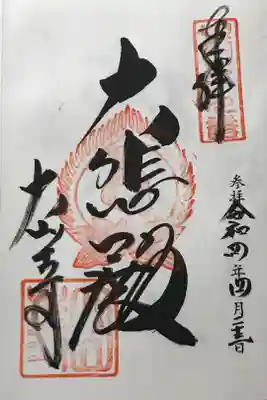 奉拝
参拝 令和四年四月二三日
大悲殿
大山寺